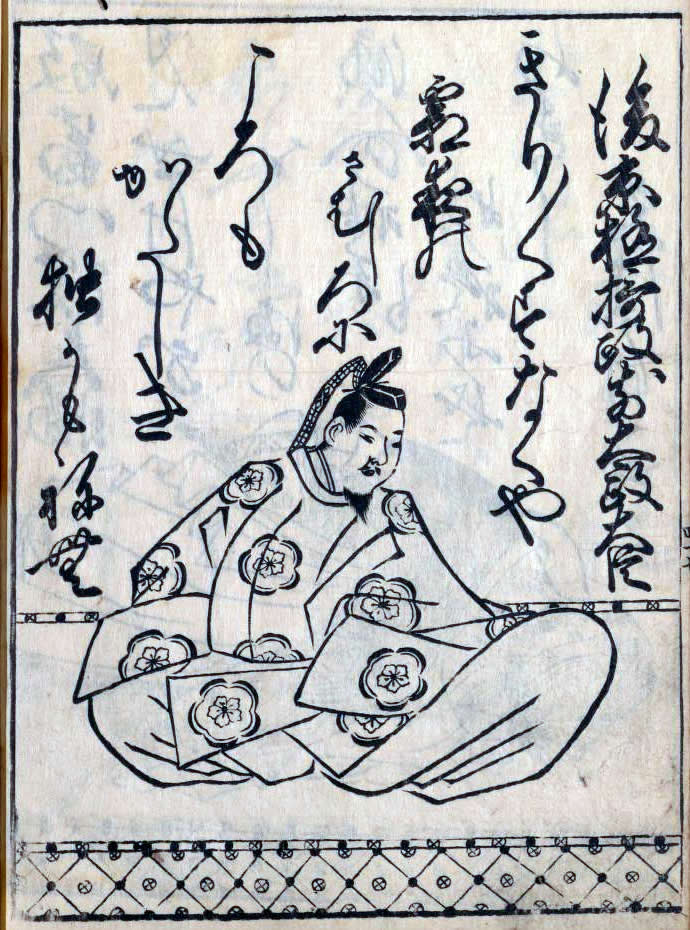 後京極摂政前太政大臣
きり〱すなくや
霜夜の
さむしろに
ころも
かたしき
独かも祢無